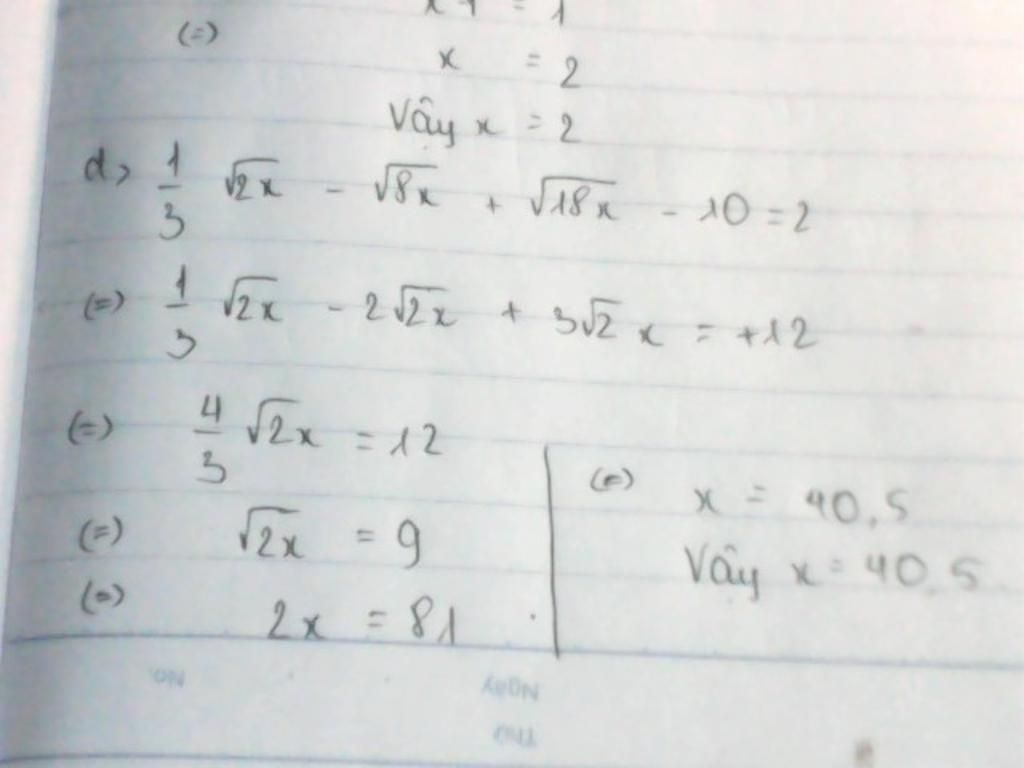 x-1 = 1
(=) x = 2
Vây x = 2
d> 1/3 √2x - √8x + √18x - 10 = 2
(=) 1/3 √2x - 2√2x + 3√2 x = +12
(=) 4/3 √2x = 12
(=) √2x = 9
(=) 2x = 81
(=) x = 40,5
Vây x = 40,5
No.
Ngày
Thứ